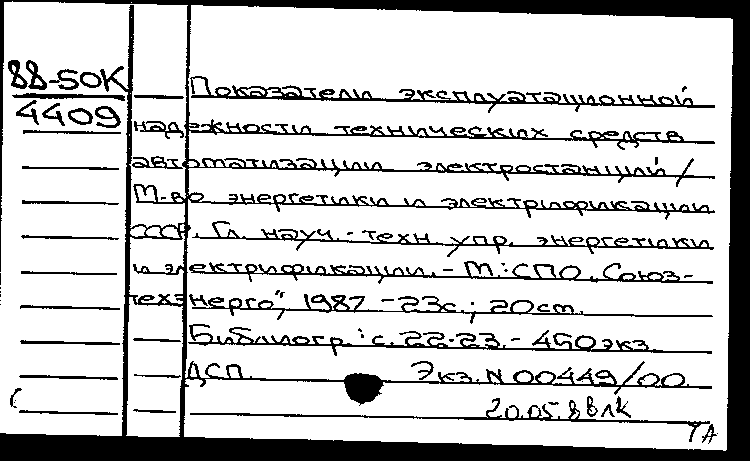 88-50К
4409
Показатели эксплуатационной
надежности технических средств
автоматизации электростанций /
М-во энергетики и электрификации
СССР. Гл. науч.-техн. упр. энергетики
и электрификации. - М.: СПО "Союз-
техэнерго", 1987 - 23с.; 20см.
Библиогр.: с. 22-23. - 450экз.
ДСП. Экз. N 00449/00.
20.05.88 ЛК
ТА